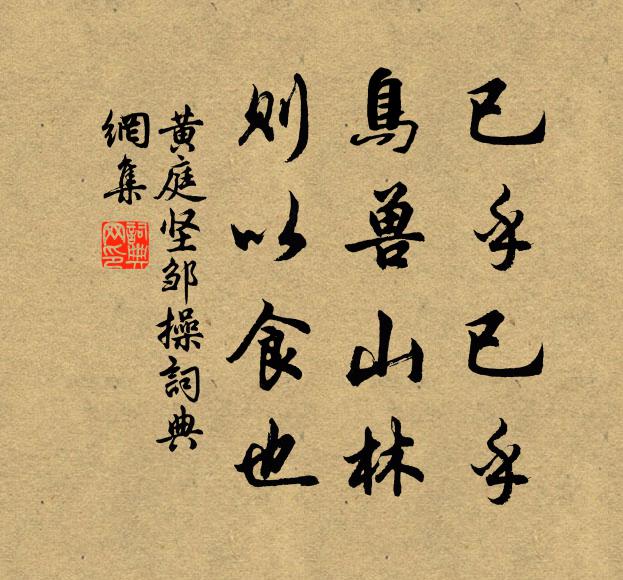 已乎已乎
鳥兽山林
则以食也
黄庭坚邹操詞典
網集
詞典
网印